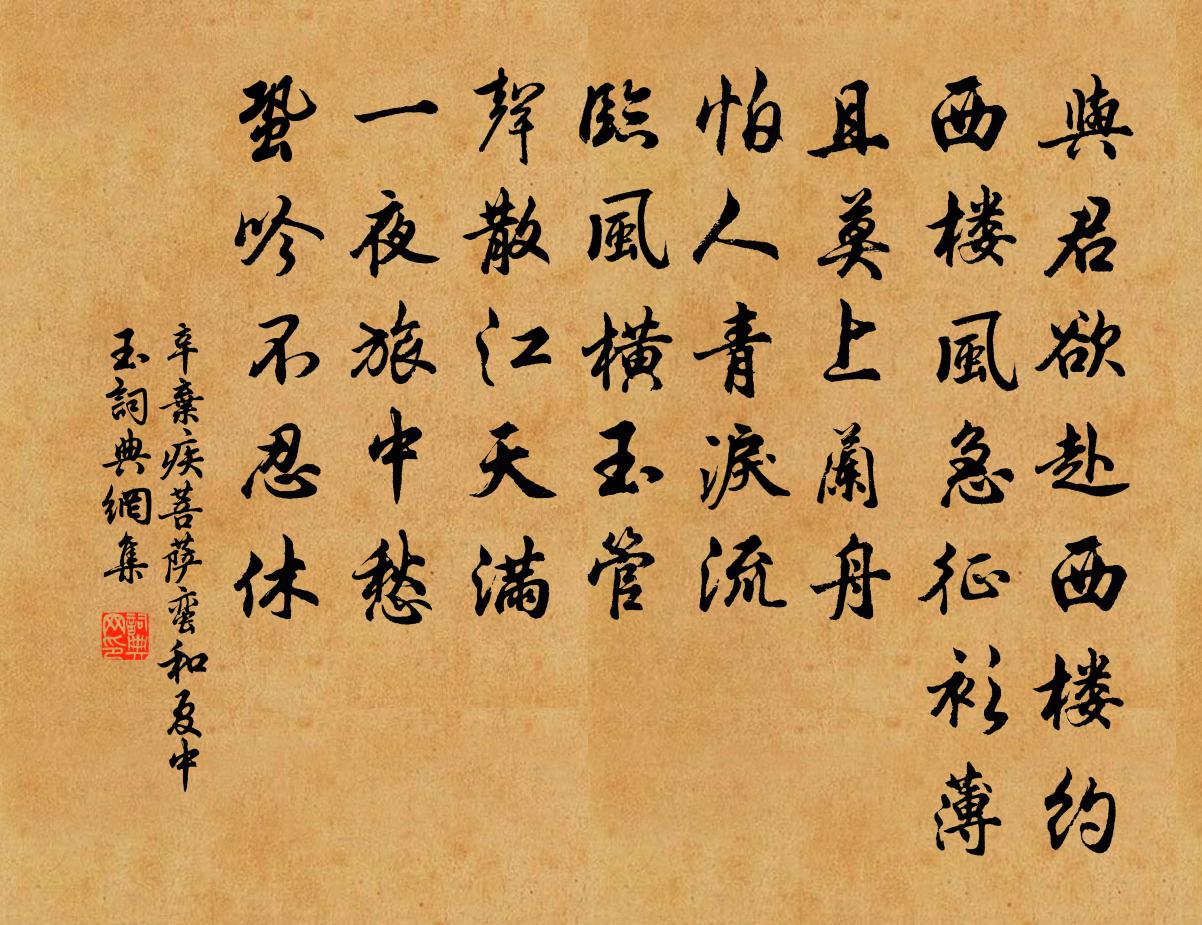 與君欲赴西楼约
西楼風急征衫薄
且莫上蘭舟
怕人青淚流
臨風橫玉管
聲散江天滿
一夜旅中愁
蛩吟不忍休
辛棄疾菩萨蛮和夏中
玉詞典網集
詞典网印